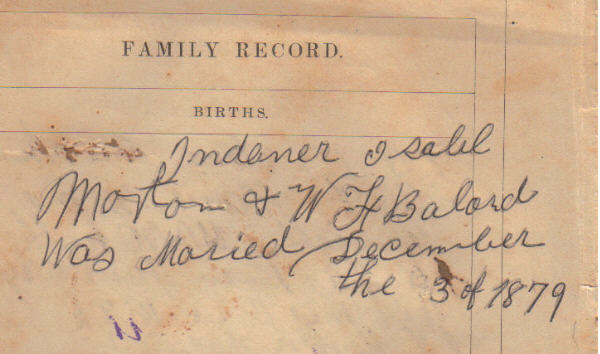 FAMILY RECORD.
BIRTHS.
Indaner Isabil
Morton & W F Balard
Was Maried December
the 3 of 1879